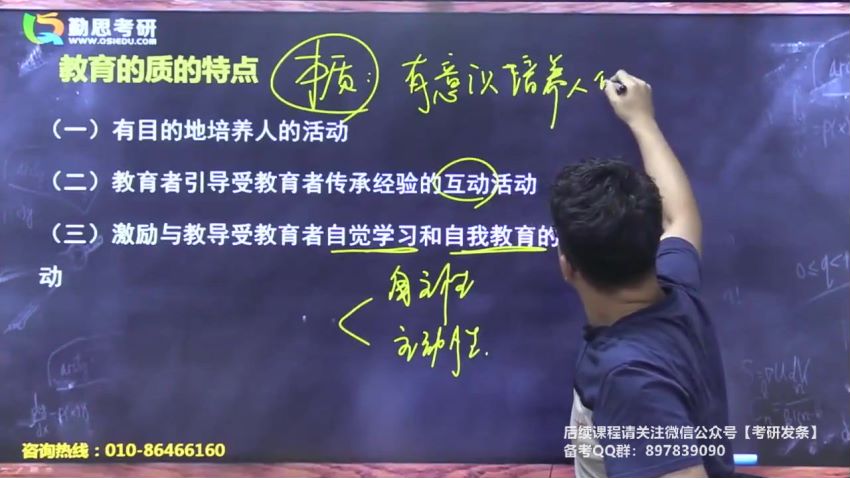 勤思考研
WWW.QSIEDU.COM
教育的质的特点
本质：有意识培养人的
（一）有目的地培养人的活动
（二）教育者引导受教育者传承经验的互动活动
（三）激励与教导受教育者自觉学习和自我教育的
动
自主性
主动性
咨询热线：010-86466160
后续课程请关注微信公众号【考研发条】
备考QQ群：897839090